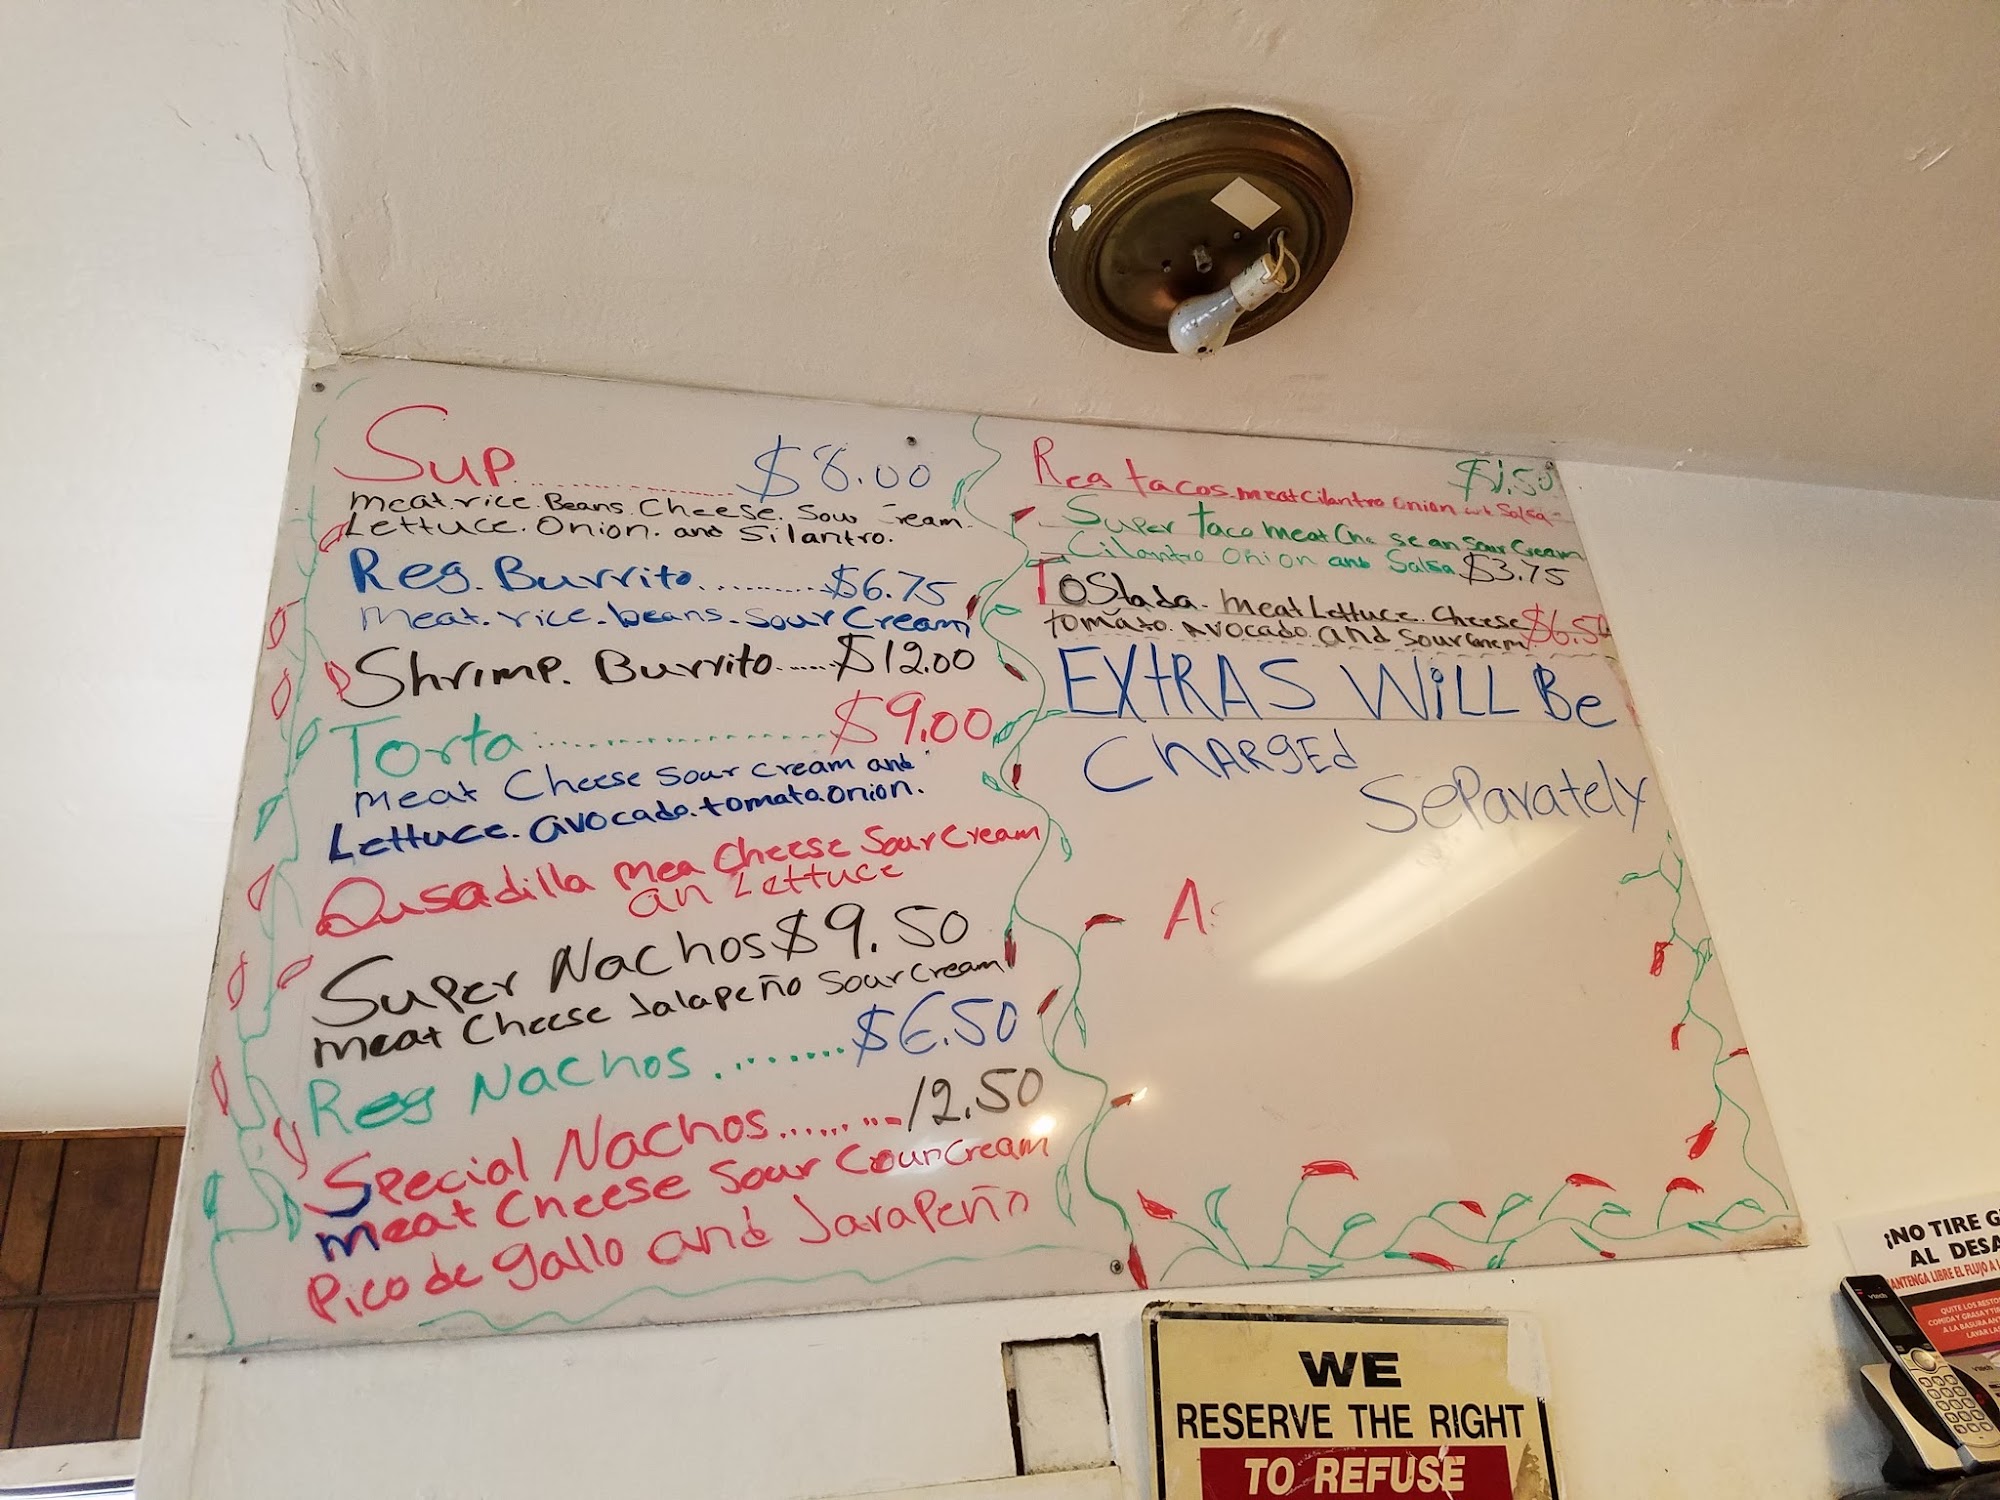 Sup. $8.00
meat.rice.Beans.Cheese.Sour Cream.
Lettuce.Onion.and Silantro.
Reg. Burrito $6.75
meat.rice.beans.sour Cream
Shrimp. Burrito $12.00
Torta $9.00
meat Cheese sour cream and
Lettuce.avocado.tomata.onion.
Qusadilla mea Cheese Sour Cream
an Lettuce
Super Nachos $9.50
meat Cheese Jalapeño Sour Cream
Reg Nachos $6.50
Special Nachos 12.50
meat Cheese Sour CourCream
Pico de gallo and Jarapeño
Reg tacos.meat Cilantro onion Salsa $1.50
Super taco meat Che se an Sour Cream
Cilantro Onion and Salsa $3.75
Tostada. meat Lettuce. Cheese $6.50
tomato. avocado and Sour Cream
EXtRAS WiLL Be
CHARgEd
SePArately
A
WE
RESERVE THE RIGHT
TO REFUSE
¡NO TIRE G
AL DESA
MANTENGA LIBRE EL FLUJO A L
QUITE LOS RESTOS
COMIDA Y GRASA Y TIR
A LA BASURA ANT
LAVAR LAS
vtech
vtech